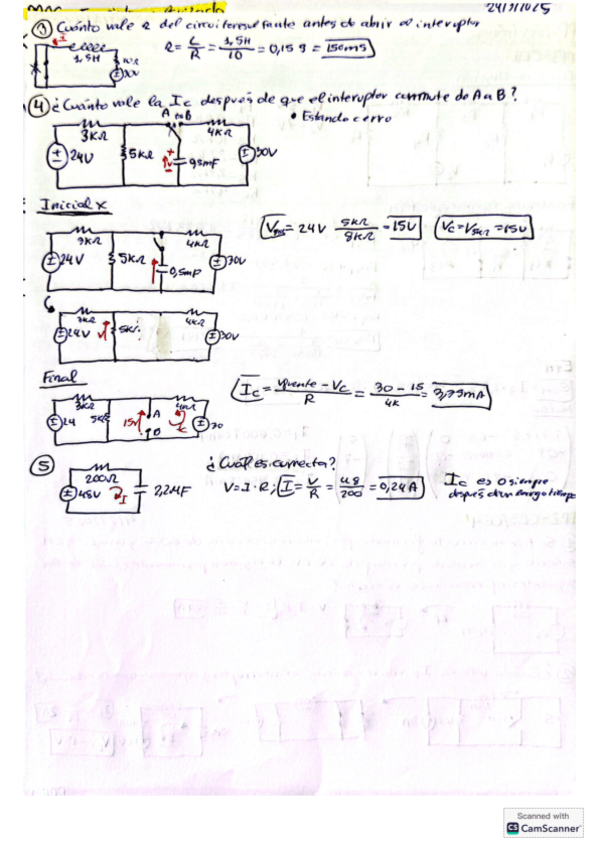 24/11/2025
③ Cuánto vale τ del circuito resultante antes de abrir el interruptor
1,5H
10Ω
30V
τ = L/R = 1,5H/10 = 0,15 s = 150ms
④ ¿Cuánto vale la Ic después de que el interruptor conmute de A a B?
• Estando cerro
A to B
3KΩ
4KΩ
24V
5KΩ
0,5mF
30V
Inicial x
3KΩ
4KΩ
24V
5KΩ
0,5mF
30V
V5KΩ = 24V 5KΩ/8KΩ = 15V
Vc = V5KΩ = 15V
3KΩ
4KΩ
24V
5K
30V
Final
3KΩ
4KΩ
24
5K
15V
A
B
30
Ic = Vfuente - Vc/R = 30 - 15/4K = 3,75mA
⑤
¿Cuál es correcta?
200Ω
48V
I
2,2µF
V=I·R; I = V/R = 48/200 = 0,24A
Ic es 0 siempre
después de un largo tiempo
Scanned with
CS CamScanner